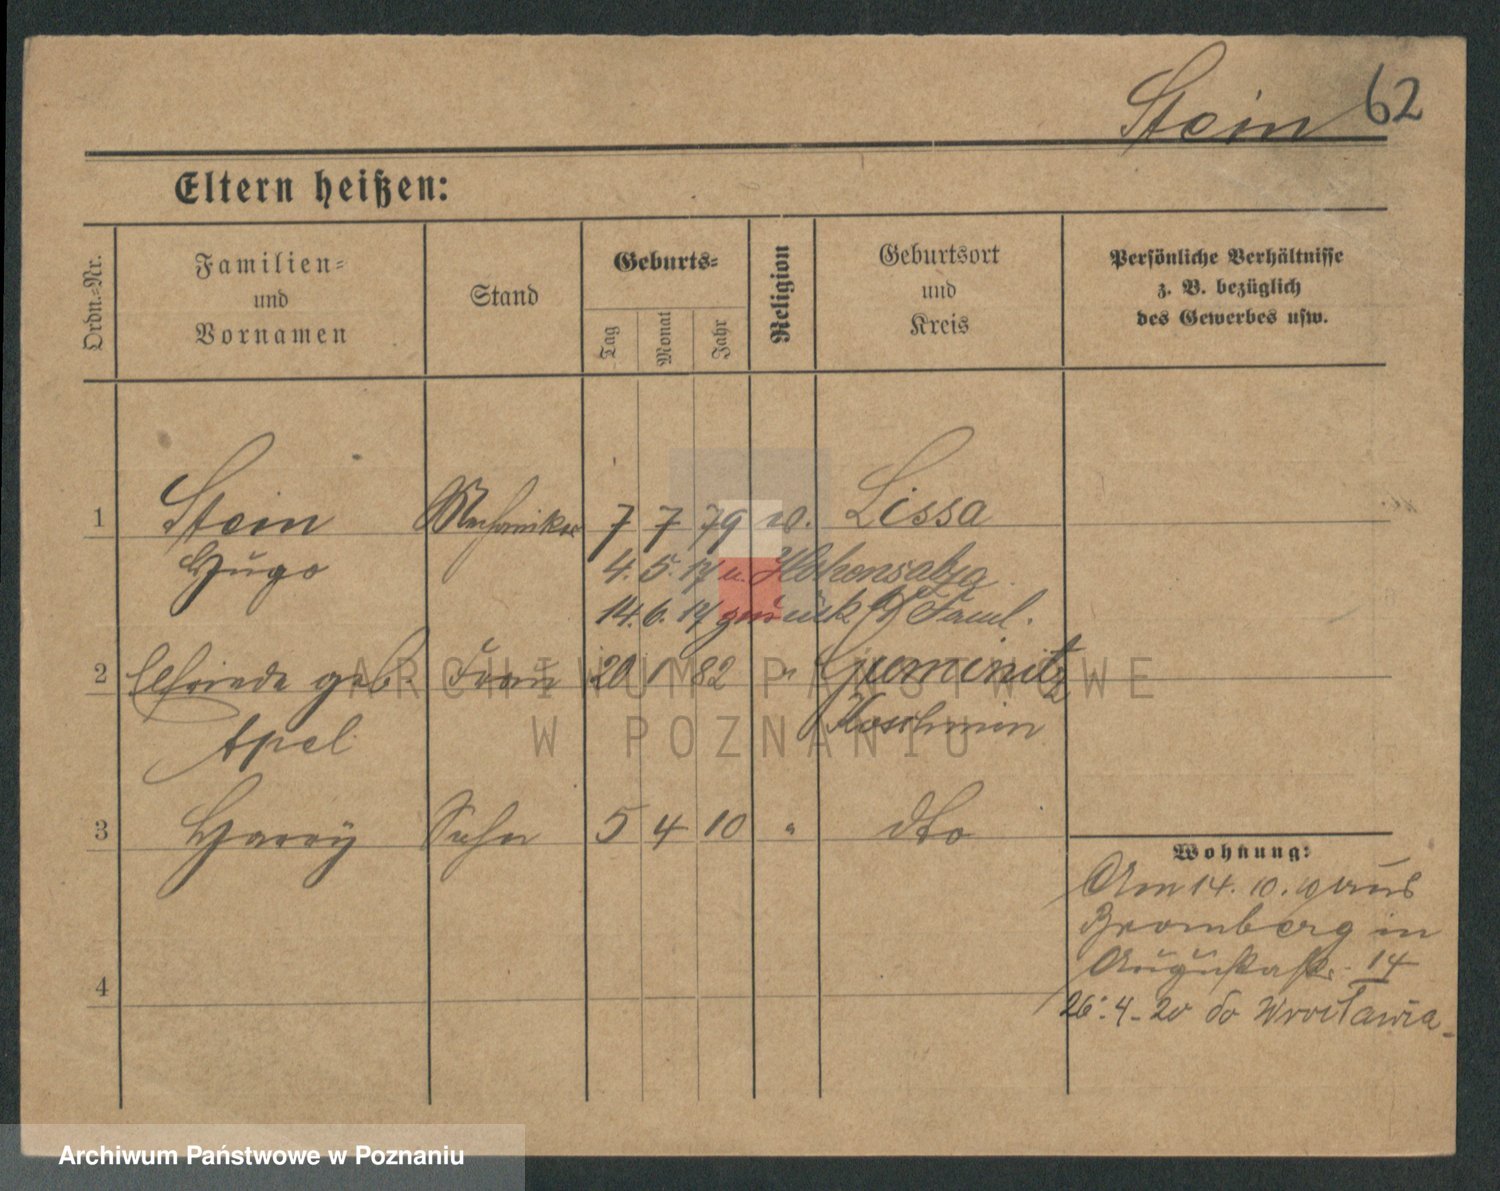 Stein 62
Eltern heißen:
Ordn.-Nr.
Familien-
und
Vornamen
Stand
Geburts-
Tag
Monat
Jahr
Religion
Geburtsort
und
Kreis
Persönliche Verhältnisse
z. B. bezüglich
des Gewerbes usw.
1 Stein Mechaniker 7 7 79 Lissa
Hugo 4. 5. 14 n. Hohensalza
14. 6. 14 zurück Faml.
2 Elfriede geb. Frau 20 1 82 "
Apel Koschmin
3 Harry Sohn 5 4 10 " dto
4
Wohnung:
Am 14. 10. aus
Bromberg in
Augustastr. 14
26. 4. 20 do Wrocławia
ARCHIWUM PAŃSTWOWE
W POZNANIU
Archiwum Państwowe w Poznaniu